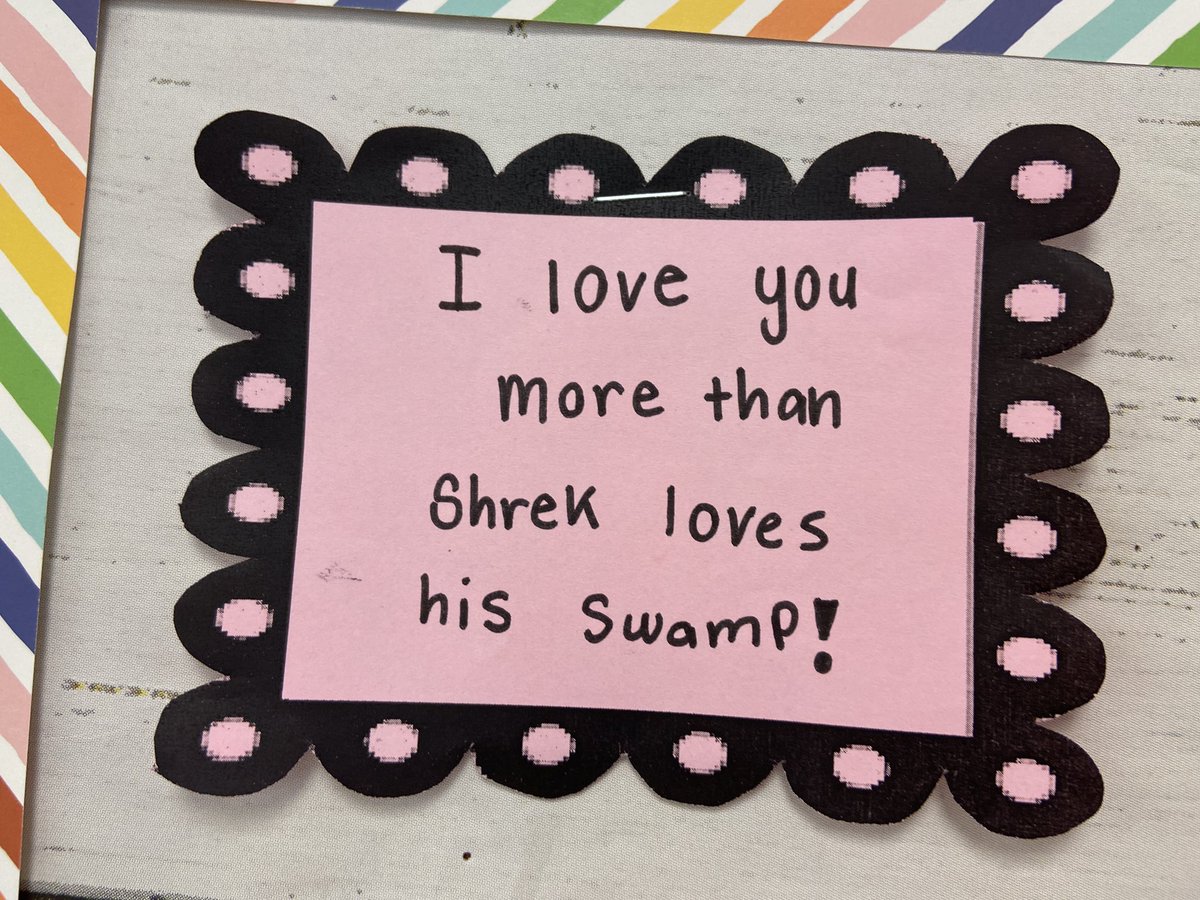 I love you
more than
Shrek loves
his swamp!